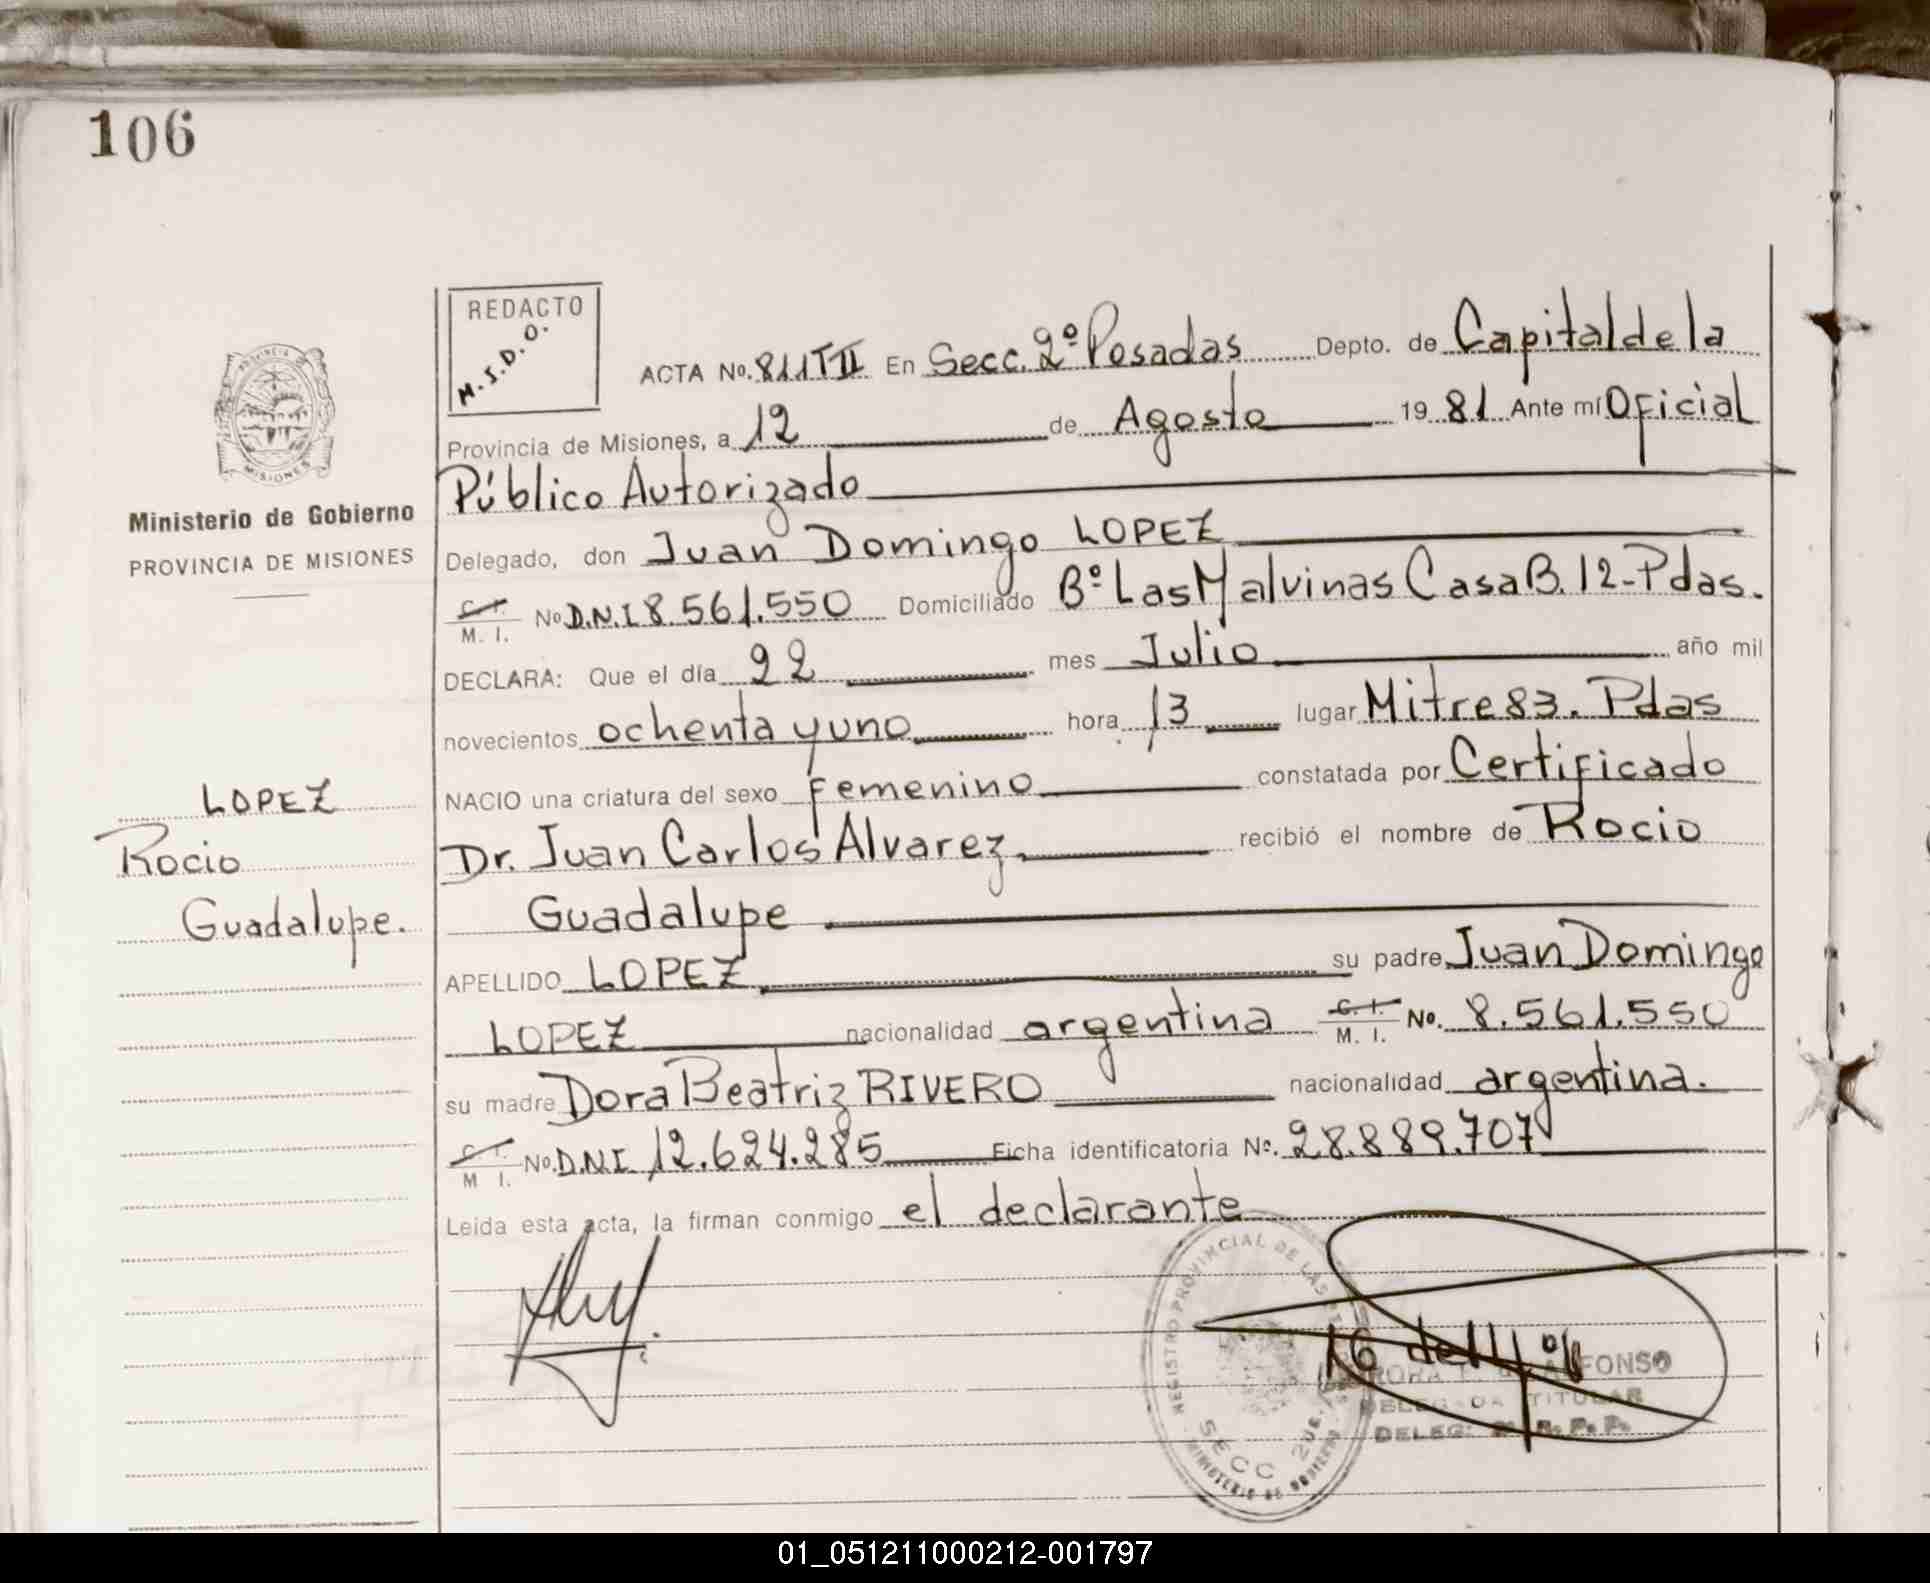 106
REDACTO
M.S.D.O.
ACTA No. 811 T II En Secc. 2º Posadas Depto. de Capital de la
Provincia de Misiones, a 12 de Agosto 1981 Ante mí Oficial
Público Autorizado
PROVINCIA DE
MISIONES
Ministerio de Gobierno
PROVINCIA DE MISIONES
Delegado, don Juan Domingo LOPEZ
C. I. M. I. No D.N.I 8.561.550 Domiciliado Bº Las Malvinas Casa B. 12-Pdas.
DECLARA: Que el día 22 mes Julio año mil
novecientos ochenta y uno hora 13 lugar Mitre 83. Pdas
LOPEZ
Rocio
Guadalupe.
NACIO una criatura del sexo femenino constatada por Certificado
Dr. Juan Carlos Alvarez. recibió el nombre de Rocio
Guadalupe
APELLIDO LOPEZ su padre Juan Domingo
LOPEZ nacionalidad argentina C. I. M. I. No. 8.561.550
su madre Dora Beatriz RIVERO nacionalidad argentina.
C. I. M I. No. D.N.I. 12.624.285 Ficha identificatoria Nº. 28.889.707
Leida esta acta, la firman conmigo el declarante
REGISTRO PROVINCIAL DE LAS
SECC 2DA.
MINISTERIO DE GOBIERNO
ALFONSO
DELEGADA TITULAR
DELEG: R. P. P.
01_051211000212-001797